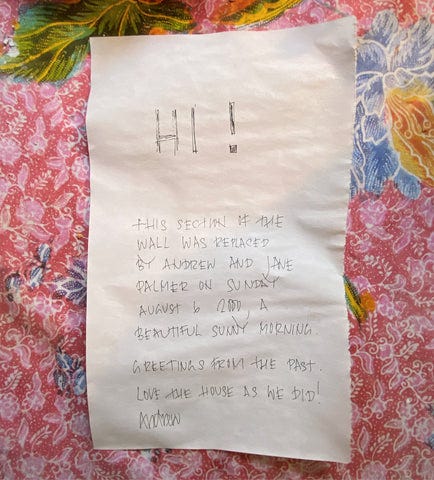 HI!
THIS SECTION OF THE
WALL WAS REPLACED
BY ANDREW AND JANE
PALMER ON SUNDAY
AUGUST 6 2000, A
BEAUTIFUL SUNNY MORNING.
GREETINGS FROM THE PAST.
LOVE THE HOUSE AS WE DID!
Andrew